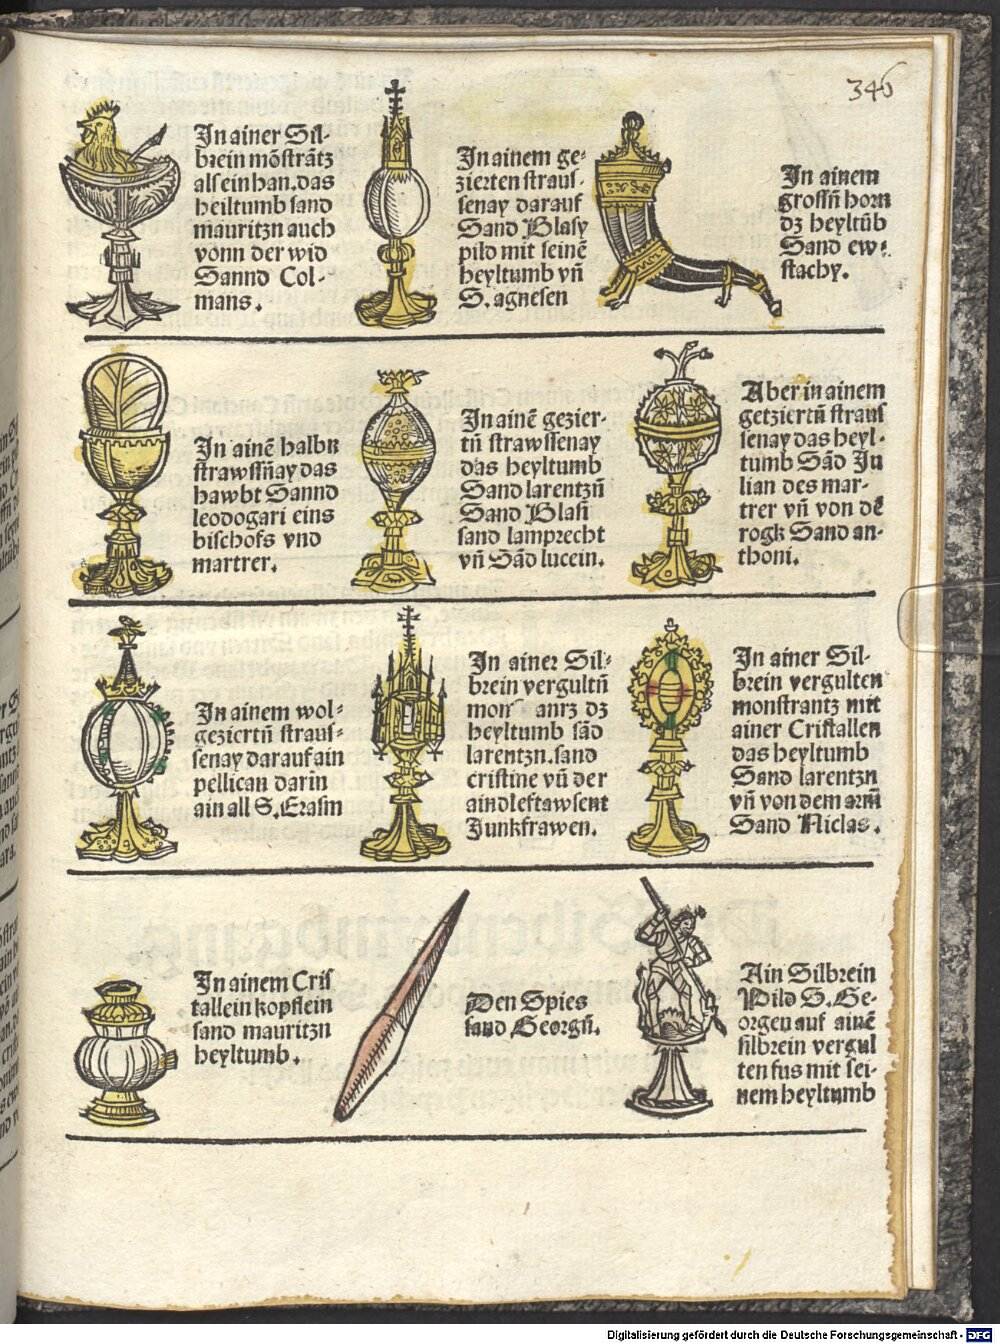 346
In ainer Sil-
brein mõstrãtz
als ein han. das
heiltumb sand
mauritzn auch
vonn der wid
Sannd Col-
mans.
In ainem ge-
zierten straus-
senay darauf
Sand Blasy
pild mit seinẽ
heyltumb vñ
S. agnesen
In ainem
grossñ horn
dz heyltũb
Sand ew-
stachy.
In ainẽ halbn
strawssñay das
hawbt Sannd
leodogari eins
bischofs vnd
martrer.
In ainẽ gezier-
tñ strawssenay
das heyltumb
Sand larentzñ
Sand Blasi
sand lamprecht
vñ Sãd luccein.
Aber in ainem
getziertñ straus
senay das heyl-
tumb Sãd Ju
lian des mar-
trer vñ von dẽ
rogk Sand an-
thoni.
In ainem wol-
geziertñ straus-
senay darauf ain
pellican darin
ain all S. Erasm
In ainer Sil-
brein vergultñ
mon anrz dz
heyltumb sãd
larentzn. sand
cristine vñ der
aindleftawsent
Junkfrawen.
In ainer Sil-
brein vergulten
monstrantz mit
ainer Cristallen
das heyltumb
Sand larentzn
vñ von dem arm̃
Sand Niclas.
In ainem Cris
tallein kopflein
sand mauritzn
heyltumb.
Den Spies
sand Georgñ.
Ain Silbrein
Pild S. Ge-
orgen auf ainẽ
silbrein vergul
ten fus mit sei-
nem heyltumb
Digitalisierung gefördert durch die Deutsche Forschungsgemeinschaft - DFG